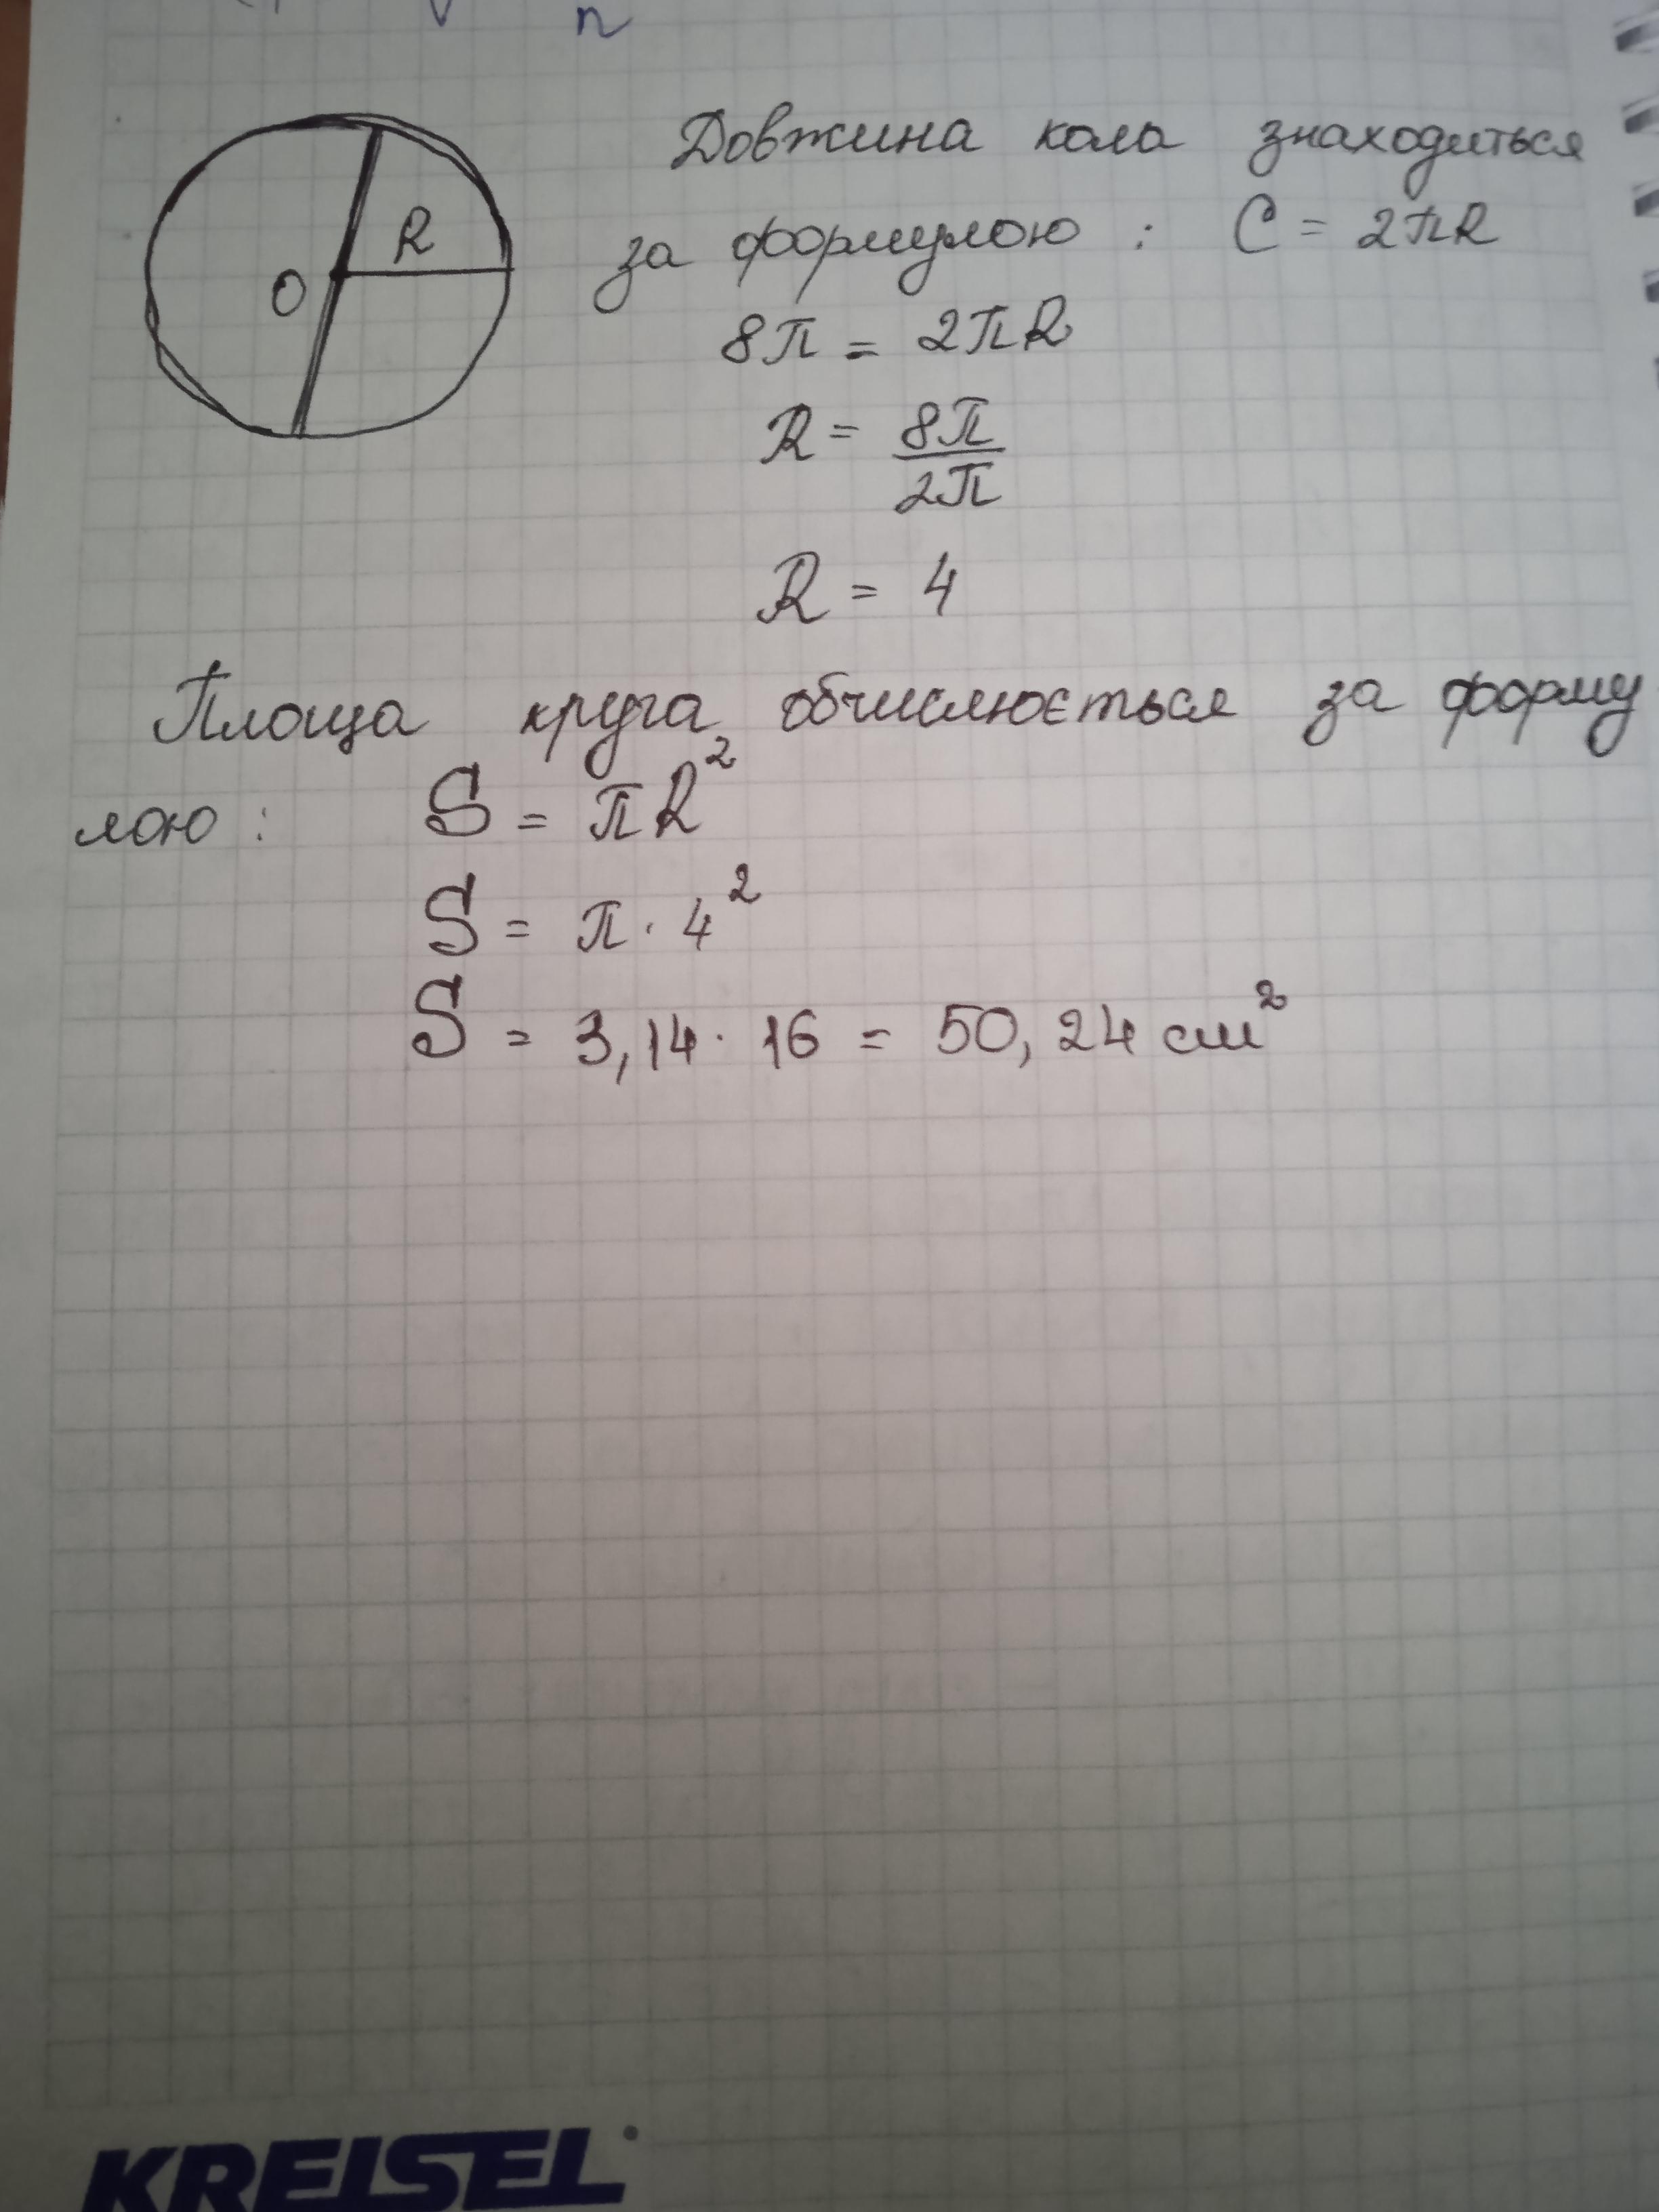 n
Довжина кола знаходиться
R
за формулою : C = 2πR
O
8π = 2πR
R = 8π/2π
R = 4
Площа круга обчислюється за форму
лою : S = πR²
S = π · 4²
S = 3,14 · 16 = 50,24 см²
KREISEL